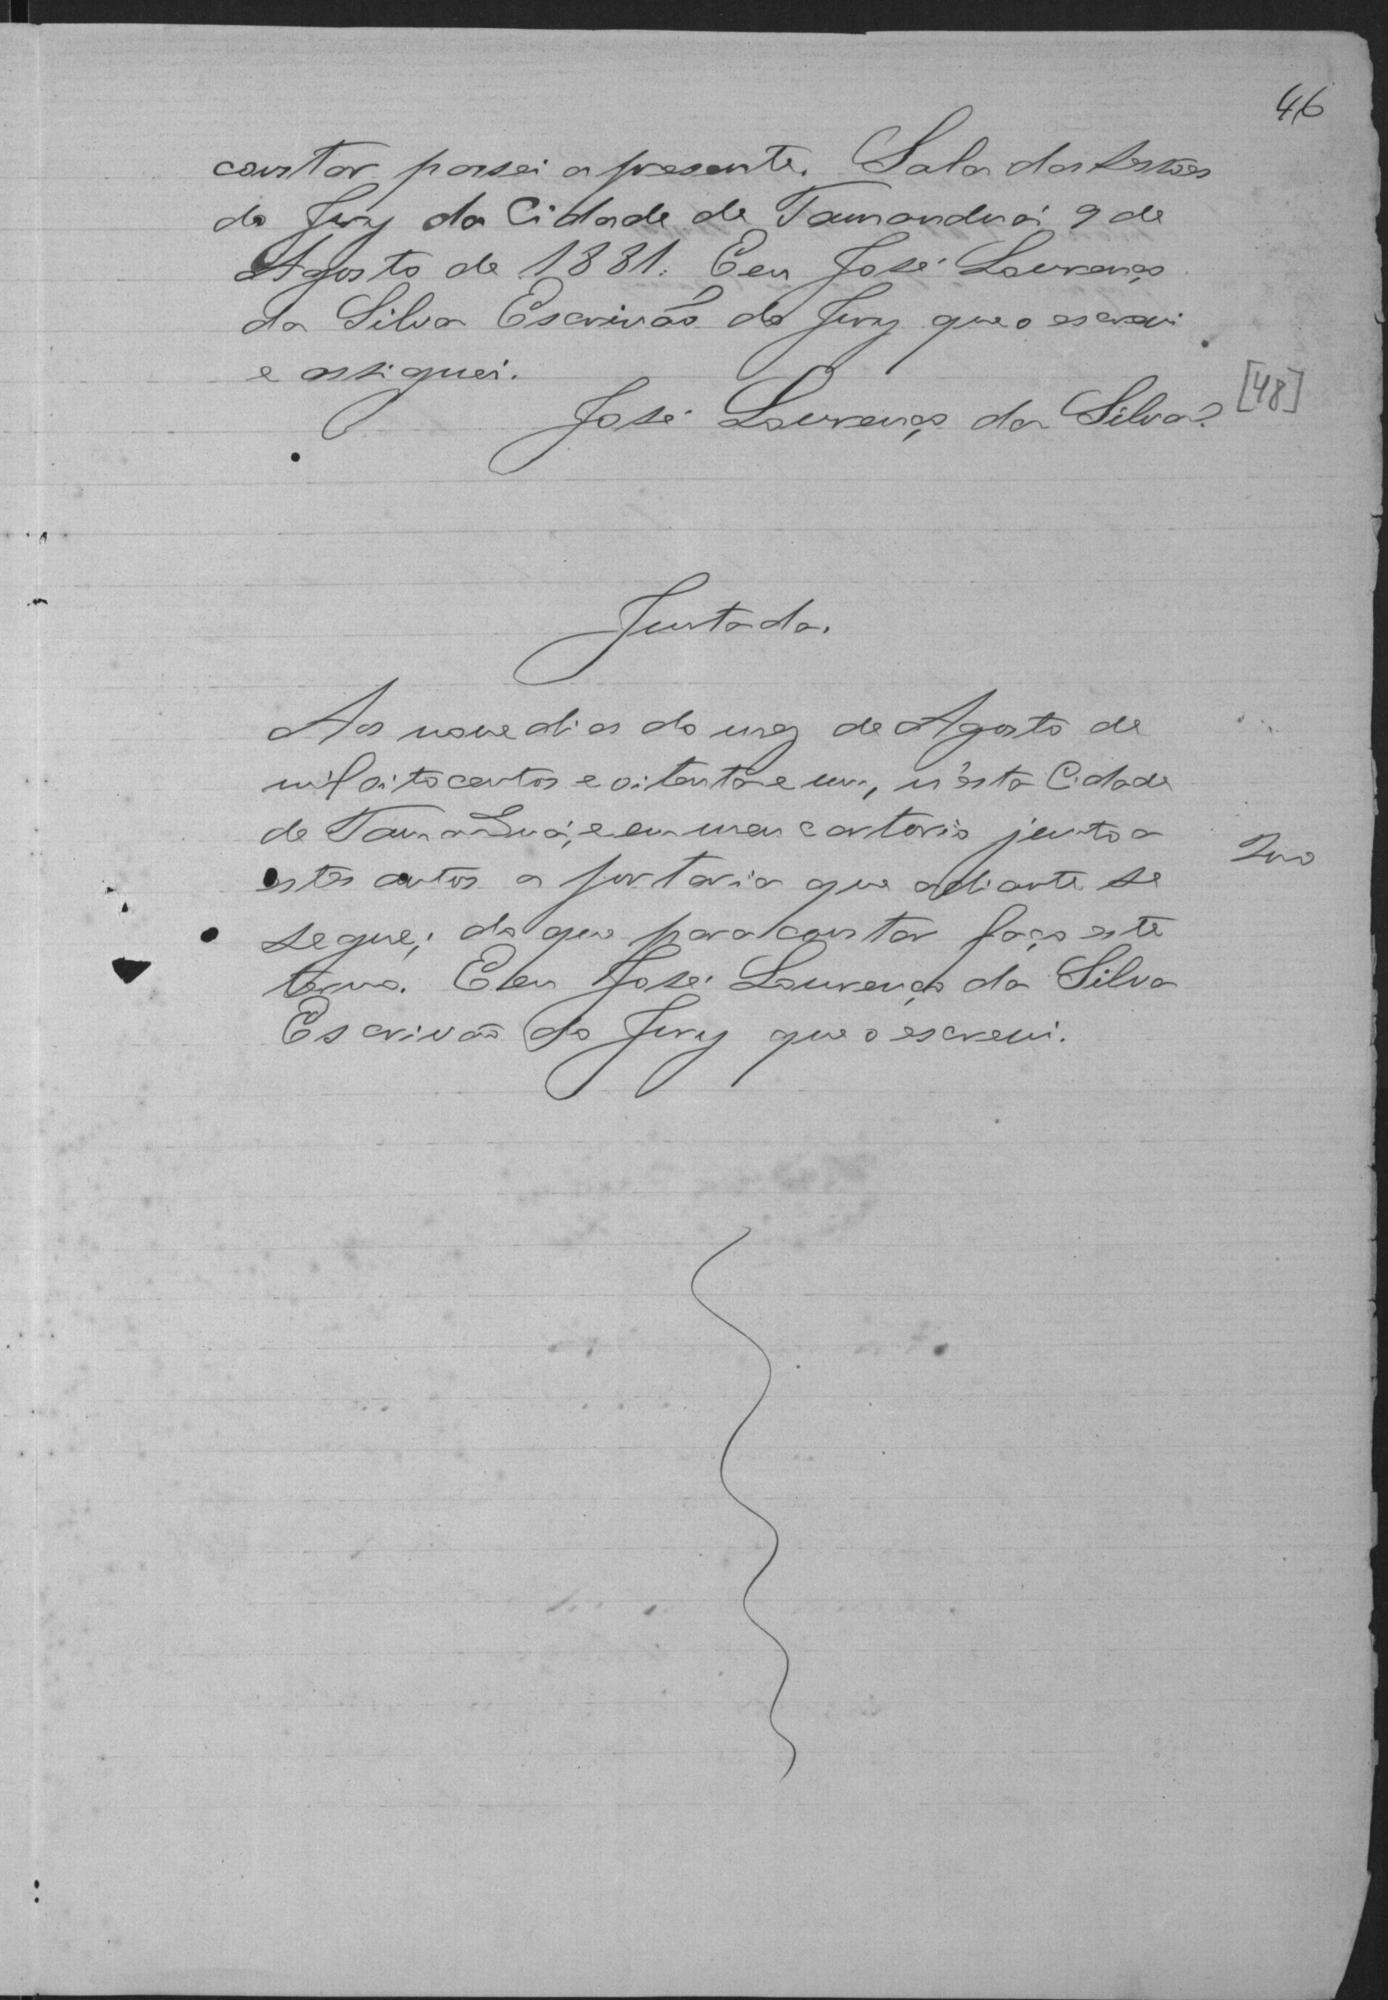 46
constar passei a presente. Sala das Sessões
do Jury da Cidade de Tamanduá 9 de
Agosto de 1881. E eu José Lourenço
da Silva Escrivão do Jury que o escrevi
e assignei.
José Lourenço da Silva.
[48]
Juntada.
Aos nove dias do mez de Agosto de
mil oitocentos e oitenta e um, n'esta Cidade
de Tamanduá, e em meu cartorio junto a
estes autos a portaria que adiante se
segue; do que para constar faço este
termo. E eu José Lourenço da Silva
Escrivão do Jury que o escrevi.